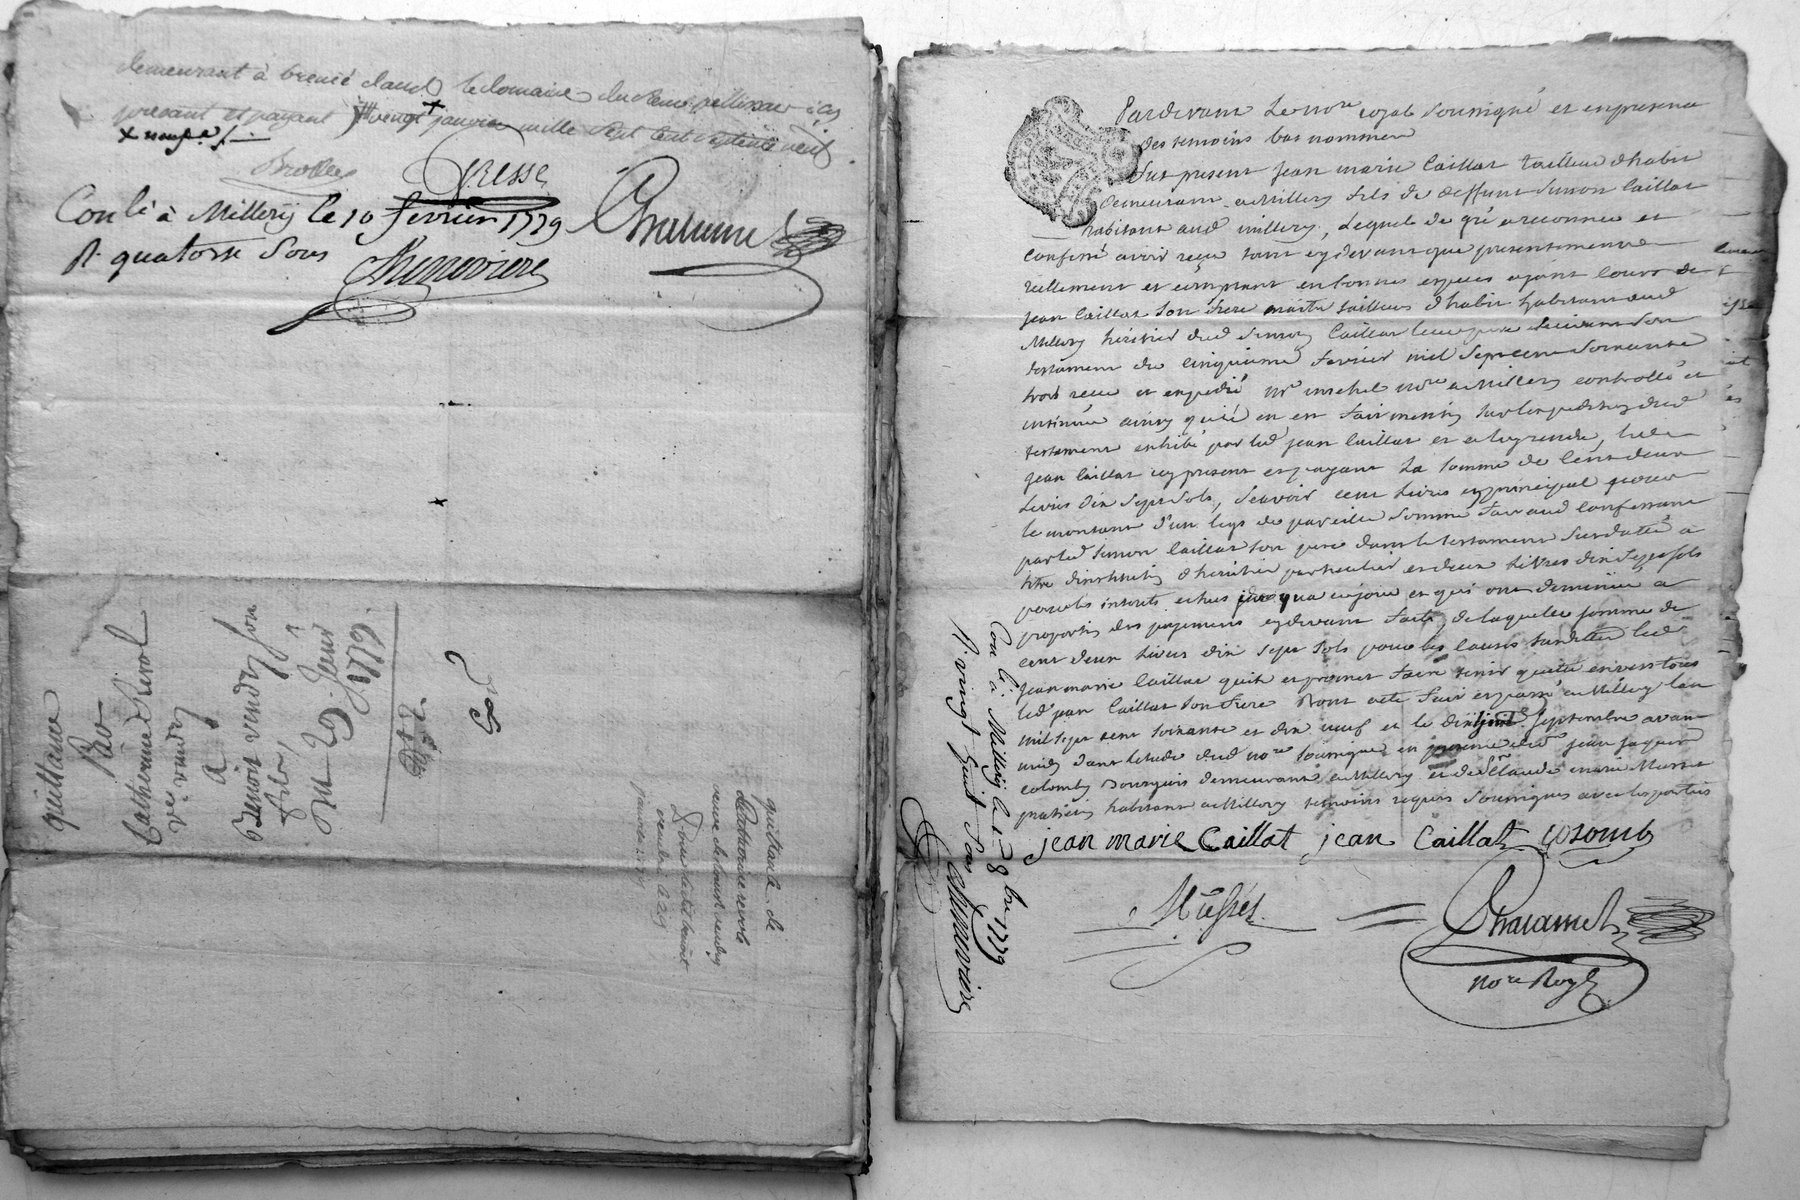 demeurant à
presant et payant vingt janvier mille Sept Cent septente neuf
Brossy
Gresse
Conlé à Millery le 10 fevrier 1779
R. quatorse Sous
Chenevriere
Charamel
quittance
Par
Catherine Rivol
ve vendry
A
Benoit vendry son
fils,
Du 29 Janr
1779.
quittance de
Catherine revole
veuve de benoit vendry
a benoit
vendry le 29
janvier 1779
Pardevant Le nore royal Soussigné et en presence
des temoins bas nommes
Fut present Jean marie Caillat tailleur d'habit
demeurant a Millery fils de deffunt Simon Caillat
habitant aud millery, Lequel de gré a reconnu et
Confessé avoir reçu tant cy devant que presentement
réellement et comptant en bonnes especes ayant Cours de
Jean Caillat Son frere maitre tailleur d'habit habitant aud
Millery héritier dud Simon Caillat leur pere Suivant Son
testament du Cinquieme fevrier mil Sept cent Soixante
trois reçu et expedié Me michel nore a Millery controllé et
insinué ainsy qu'il en est fait mention Sur l'expedition dud
testament exhibé par led Jean Caillat et a luy rendu, led
Jean Caillat icy present et payant La Somme de Cent deux
Livres dix Sept Sols, Scavoir cent Livres en principal pour
le montant d'un legs de pareille Somme fait aud Confessant
par led Simon Caillat son pere dans le testament Susdatté a
titre d'institution d'héritier particulier et deux Livres dix Sept Sols
pour les interets echus jusqu'a ce jour et qui ont diminué a
proportion des payements cy devant faits, de laquelle Somme de
cent deux Livres dix Sept Sols pour les causes Susdites led
Jean marie Caillat quitte et promet faire tenir quitte envers tous
led Jean Caillat Son frere Dont acte fait et passé a Millery L'an
mil Sept cent Soixante et dix neuf et le Septembre avant
midy dans l'etude dud nore Soussigné en presence de sr Jean Jaques
Colomb Bourgeois demeurant a Millery et de sr Claude marie Musset
praticien habitant a Millery temoins requis Soussignés avec les parties
jean marie Caillat jean Caillat Colomb
Musset
Charamel
nore Royl
Conlé à Millery le 1er 8bre 1779
R. vingt huit Sous Chenevriere